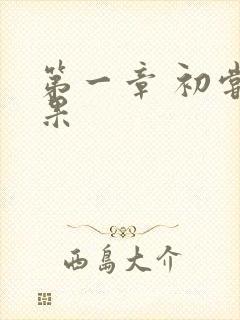 第一章 初尝
果
西岛大介